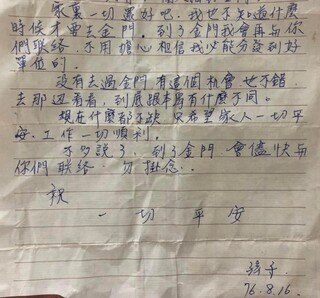 家裏一切還好吧,我也不知道什麼
時候才要去金門。到了金門我會再与你
們联络,不用擔心相信我必能分發到好
單位的。
没有去過金門有這個机會也不錯
去那边看看,到底跟本島有什麼不同。
現在什麼都不缺只希望家人一切平
安,工作一切順利。
不多說了,到了金門一會儘快与
你們联络。勿掛念。
祝
一切平安
孫子
76.8.16.